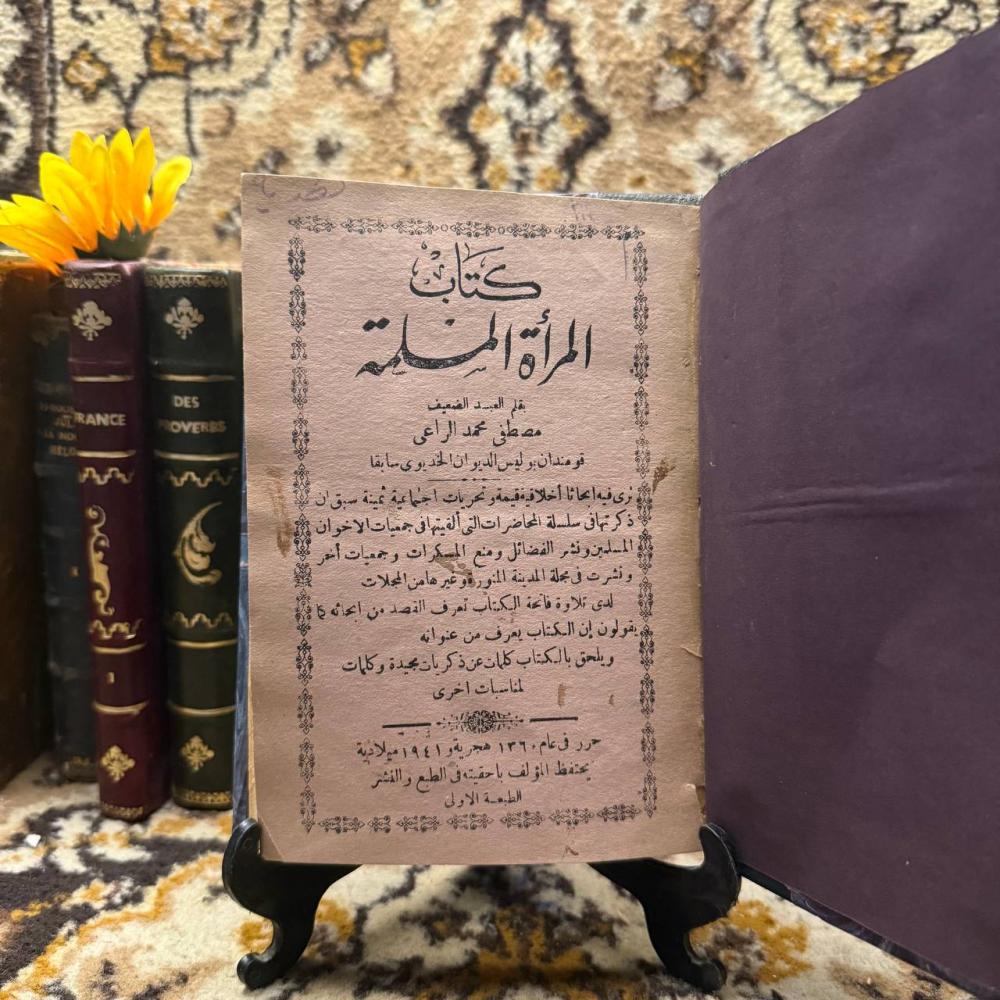 كتاب
المرأة المسلمة
بقلم العبد الضعيف
مصطفى محمد الراعى
قومندان بوليس الديوان الخديوى سابقا
ترى فيه ابحاثا أخلاقية قيمة وتحريات اجتماعية ثمينة سبق ان
ذكرتها فى سلسلة المحاضرات التى ألقيتها فى جمعيات الاخوان
المسلمين ونشر الفضائل ومنع المسكرات وجمعيات أخر
ونشرت فى مجلة المدينة المنورة وغيرها من المجلات
لدى تلاوة فاتحة الكتاب تعرف القصد من ابحاثه كما
يقولون إن الكتاب يعرف من عنوانه
ويلحق بالكتاب كلمات عن ذكريات مجيدة وكلمات
لمناسبات اخرى
حرر فى عام ١٣٦٠ هجرية و ١٩٤١ ميلادية
يحتفظ المؤلف باحقيته فى الطبع والنشر
الطبعة الاولى
DES
PROVERBS
RANCE